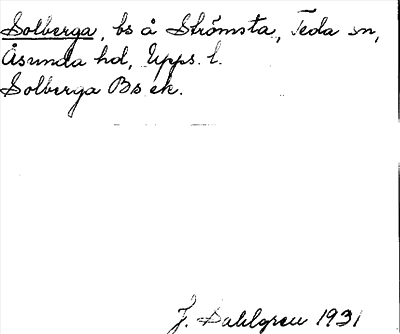 Solberga, bs å Strömsta, Teda sn,
Åsunda hd, Upps. l.
Solberga Bs ek.
J. Dahlgren 1931